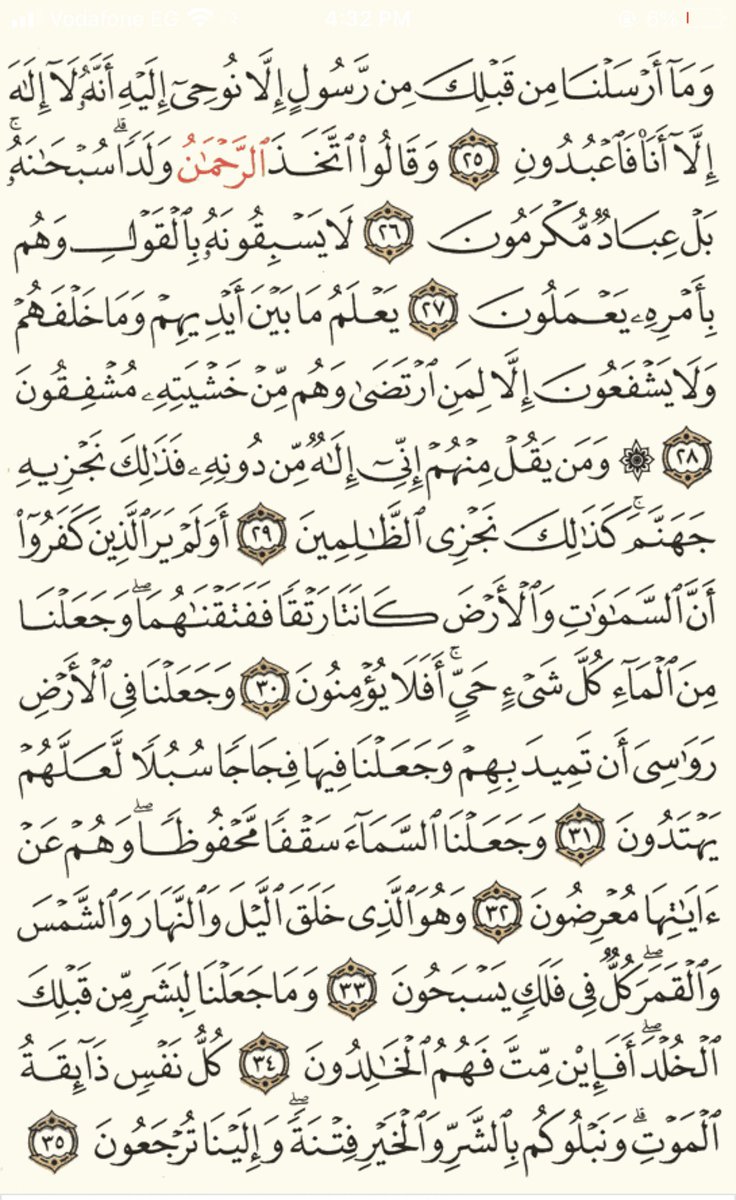 Vodafone EG 4:32 PM 6%
وَمَآ أَرْسَلْنَا مِن قَبْلِكَ مِن رَّسُولٍ إِلَّا نُوحِىٓ إِلَيْهِ أَنَّهُۥ لَآ إِلَٰهَ
إِلَّآ أَنَا۠ فَٱعْبُدُونِ ٢٥ وَقَالُوا۟ ٱتَّخَذَ ٱلرَّحْمَٰنُ وَلَدًۭا ۗ سُبْحَٰنَهُۥ ۚ
بَلْ عِبَادٌۭ مُّكْرَمُونَ ٢٦ لَا يَسْبِقُونَهُۥ بِٱلْقَوْلِ وَهُم
بِأَمْرِهِۦ يَعْمَلُونَ ٢٧ يَعْلَمُ مَا بَيْنَ أَيْدِيهِمْ وَمَا خَلْفَهُمْ
وَلَا يَشْفَعُونَ إِلَّا لِمَنِ ٱرْتَضَىٰ وَهُم مِّنْ خَشْيَتِهِۦ مُشْفِقُونَ
٢٨ ۞ وَمَن يَقُلْ مِنْهُمْ إِنِّىٓ إِلَٰهٌۭ مِّن دُونِهِۦ فَذَٰلِكَ نَجْزِيهِ
جَهَنَّمَ ۚ كَذَٰلِكَ نَجْزِى ٱلظَّٰلِمِينَ ٢٩ أَوَلَمْ يَرَ ٱلَّذِينَ كَفَرُوٓا۟
أَنَّ ٱلسَّمَٰوَٰتِ وَٱلْأَرْضَ كَانَتَا رَتْقًۭا فَفَتَقْنَٰهُمَا ۖ وَجَعَلْنَا
مِنَ ٱلْمَآءِ كُلَّ شَىْءٍ حَىٍّ ۚ أَفَلَا يُؤْمِنُونَ ٣٠ وَجَعَلْنَا فِى ٱلْأَرْضِ
رَوَٰسِىَ أَن تَمِيدَ بِهِمْ وَجَعَلْنَا فِيهَا فِجَاجًۭا سُبُلًۭا لَّعَلَّهُمْ
يَهْتَدُونَ ٣١ وَجَعَلْنَا ٱلسَّمَآءَ سَقْفًۭا مَّحْفُوظًۭا ۖ وَهُمْ عَنْ
ءَايَٰتِهَا مُعْرِضُونَ ٣٢ وَهُوَ ٱلَّذِى خَلَقَ ٱلَّيْلَ وَٱلنَّهَارَ وَٱلشَّمْسَ
وَٱلْقَمَرَ ۖ كُلٌّۭ فِى فَلَكٍۢ يَسْبَحُونَ ٣٣ وَمَا جَعَلْنَا لِبَشَرٍۢ مِّن قَبْلِكَ
ٱلْخُلْدَ ۖ أَفَإِي۟ن مِّتَّ فَهُمُ ٱلْخَٰلِدُونَ ٣٤ كُلُّ نَفْسٍۢ ذَآئِقَةُ
ٱلْمَوْتِ ۗ وَنَبْلُوكُم بِٱلشَّرِّ وَٱلْخَيْرِ فِتْنَةًۭ ۖ وَإِلَيْنَا تُرْجَعُونَ ٣٥